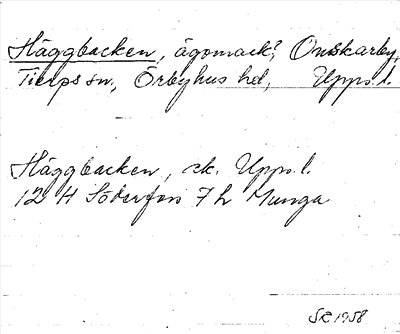 Häggbacken, ägomark?, Onskarby,
Tierps sn, Örbyhus hd, Upps. l.
Häggbacken, sk. Upps. l.
12 H Söderfors 7 h Munga
SR 1958